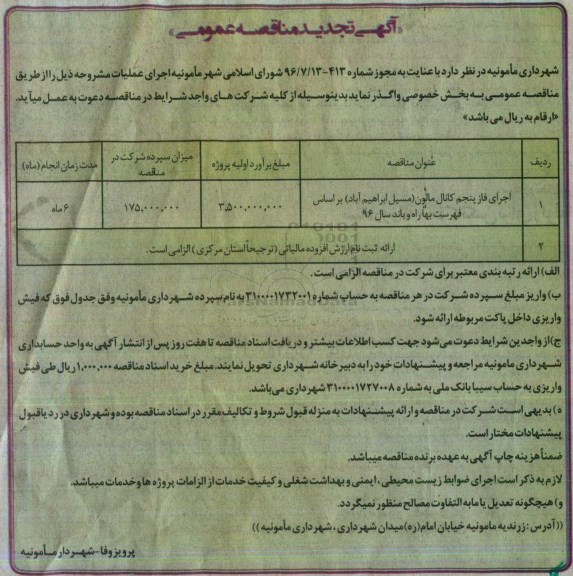 «آگهی تجدید مناقصه عمومی»
شهرداری مأمونیه در نظر دارد با عنایت به مجوز شماره ۴۱۳-۹۶/۷/۱۳ شورای اسلامی شهر مأمونیه اجرای عملیات مشروحه ذیل را از طریق
مناقصه عمومی به بخش خصوصی واگذر نماید بدینوسیله از کلیه شرکت های واجد شرایط در مناقصه دعوت به عمل میآید.
«ارقام به ریال می باشد»
ردیف عنوان مناقصه مبلغ برآورد اولیه پروژه میزان سپرده شرکت در مناقصه مدت زمان انجام (ماه)
۱ اجرای فاز پنجم کانال مالون (مسیل ابراهیم آباد) بر اساس فهرست بهأ راه و باند سال ۹۶ ۳,۵۰۰,۰۰۰,۰۰۰ ۱۷۵,۰۰۰,۰۰۰ ۶ ماه
۲ ارائه ثبت نام ارزش افزوده مالیاتی (ترجیحاً استان مرکزی) الزامی است.
الف) ارائه رتبه بندی معتبر برای شرکت در مناقصه الزامی است.
ب) واریز مبلغ سپرده شرکت در هر مناقصه به حساب شماره ۳۱۰۰۰۰۱۷۳۲۰۰۱ به نام سپرده شهرداری مأمونیه وفق جدول فوق که فیش
واریزی داخل پاکت مربوطه ارائه شود.
ج) از واجدین شرایط دعوت می‌شود جهت کسب اطلاعات بیشتر و دریافت اسناد مناقصه تا هفت روز پس از انتشار آگهی به واحد حسابداری
شهرداری مامونیه مراجعه و پیشنهادات خود را به دبیر خانه شهرداری تحویل نمایند. مبلغ خرید اسناد مناقصه ۱,۰۰۰,۰۰۰ ریال طی فیش
واریزی به حساب سیبا بانک ملی به شماره ۳۱۰۰۰۰۱۷۲۷۰۰۸ شهرداری می‌باشد.
ه) بدیهی است شرکت در مناقصه و ارائه پیشنهادات به منزله قبول شروط و تکالیف مقرر در اسناد مناقصه بوده و شهرداری در رد یا قبول
پیشنهادات مختار است.
ضمناً هزینه چاپ آگهی به عهده برنده مناقصه میباشد.
لازم به ذکر است اجرای ضوابط زیست محیطی، ایمنی و بهداشت شغلی و کیفیت خدمات از الزامات پروژه ها و خدمات میباشد.
و) هیچگونه تعدیل یا مابه التفاوت مصالح منظور نمیگردد.
((آدرس: زرندیه مامونیه خیابان امام (ره) میدان شهرداری، شهرداری مأمونیه))
پرویز وفا - شهردار مأمونیه